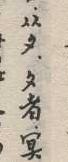 从夕、夕者、冥